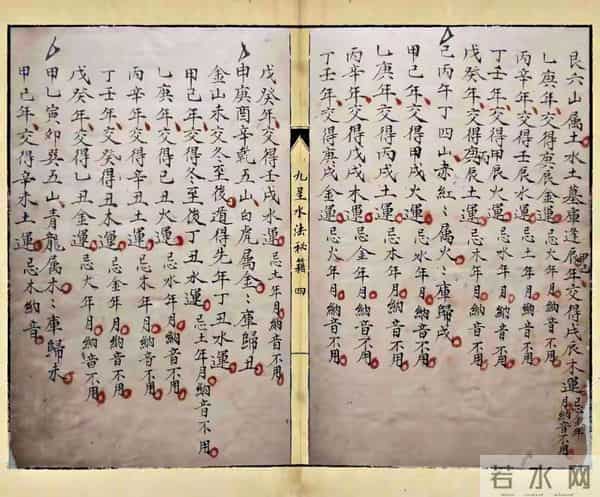 艮六山属土水土墓庫逢辰年交得戊辰木運忌金年月納音不用
甲己
乙庚年交得庚辰金運忌火年月納音不用
丙辛年交得壬辰水運忌土年月納音不用
丁壬年交得甲辰火運忌水年月納音不用
戊癸年交得庚辰土運忌木年月納音不用
丙
巳丙午丁四山赤紅〻属火〻庫歸戌
甲己年交得甲戌火運忌水年月納音不用
乙庚年交得丙戌土運忌木年月納音不用
丙辛年交得戊戌木運忌金年月納音不用
丁壬年交得庚戌金運忌火年月納音不用
九星水法秘籍 四
戊癸年交得壬戌水運忌土年月納音不用
申庚酉辛乾五山白虎属金〻庫歸丑
金山未交冬至後道得先年丁丑水運
甲己年交得冬至後丁丑水運忌土年月納音不用
乙庚年交得己丑火運忌水年月納音不用
丙辛年交得辛丑土運忌木年月納音不用
丁壬年交得癸丑木運忌金年月納音不用
戊癸年交得乙丑金運忌火年月納音不用
甲乙寅卯巽五山青龍属木〻庫歸未
甲己年交得辛未土運忌木納音
若水网